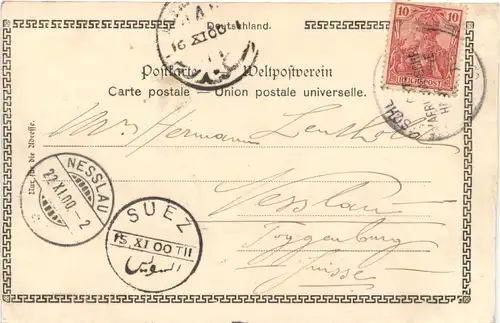 Deutschland.
10 10
REICHSPOST
16 XI 00
Postkarte Weltpostverein
Carte postale – Union postale universelle.
Nur für die Adresse.
Mr Hermann
NESSLAU
22.XI.00.–2
SUEZ
15. XI 00 TII
السويس
Nesslau
Toggenburg
Suisse